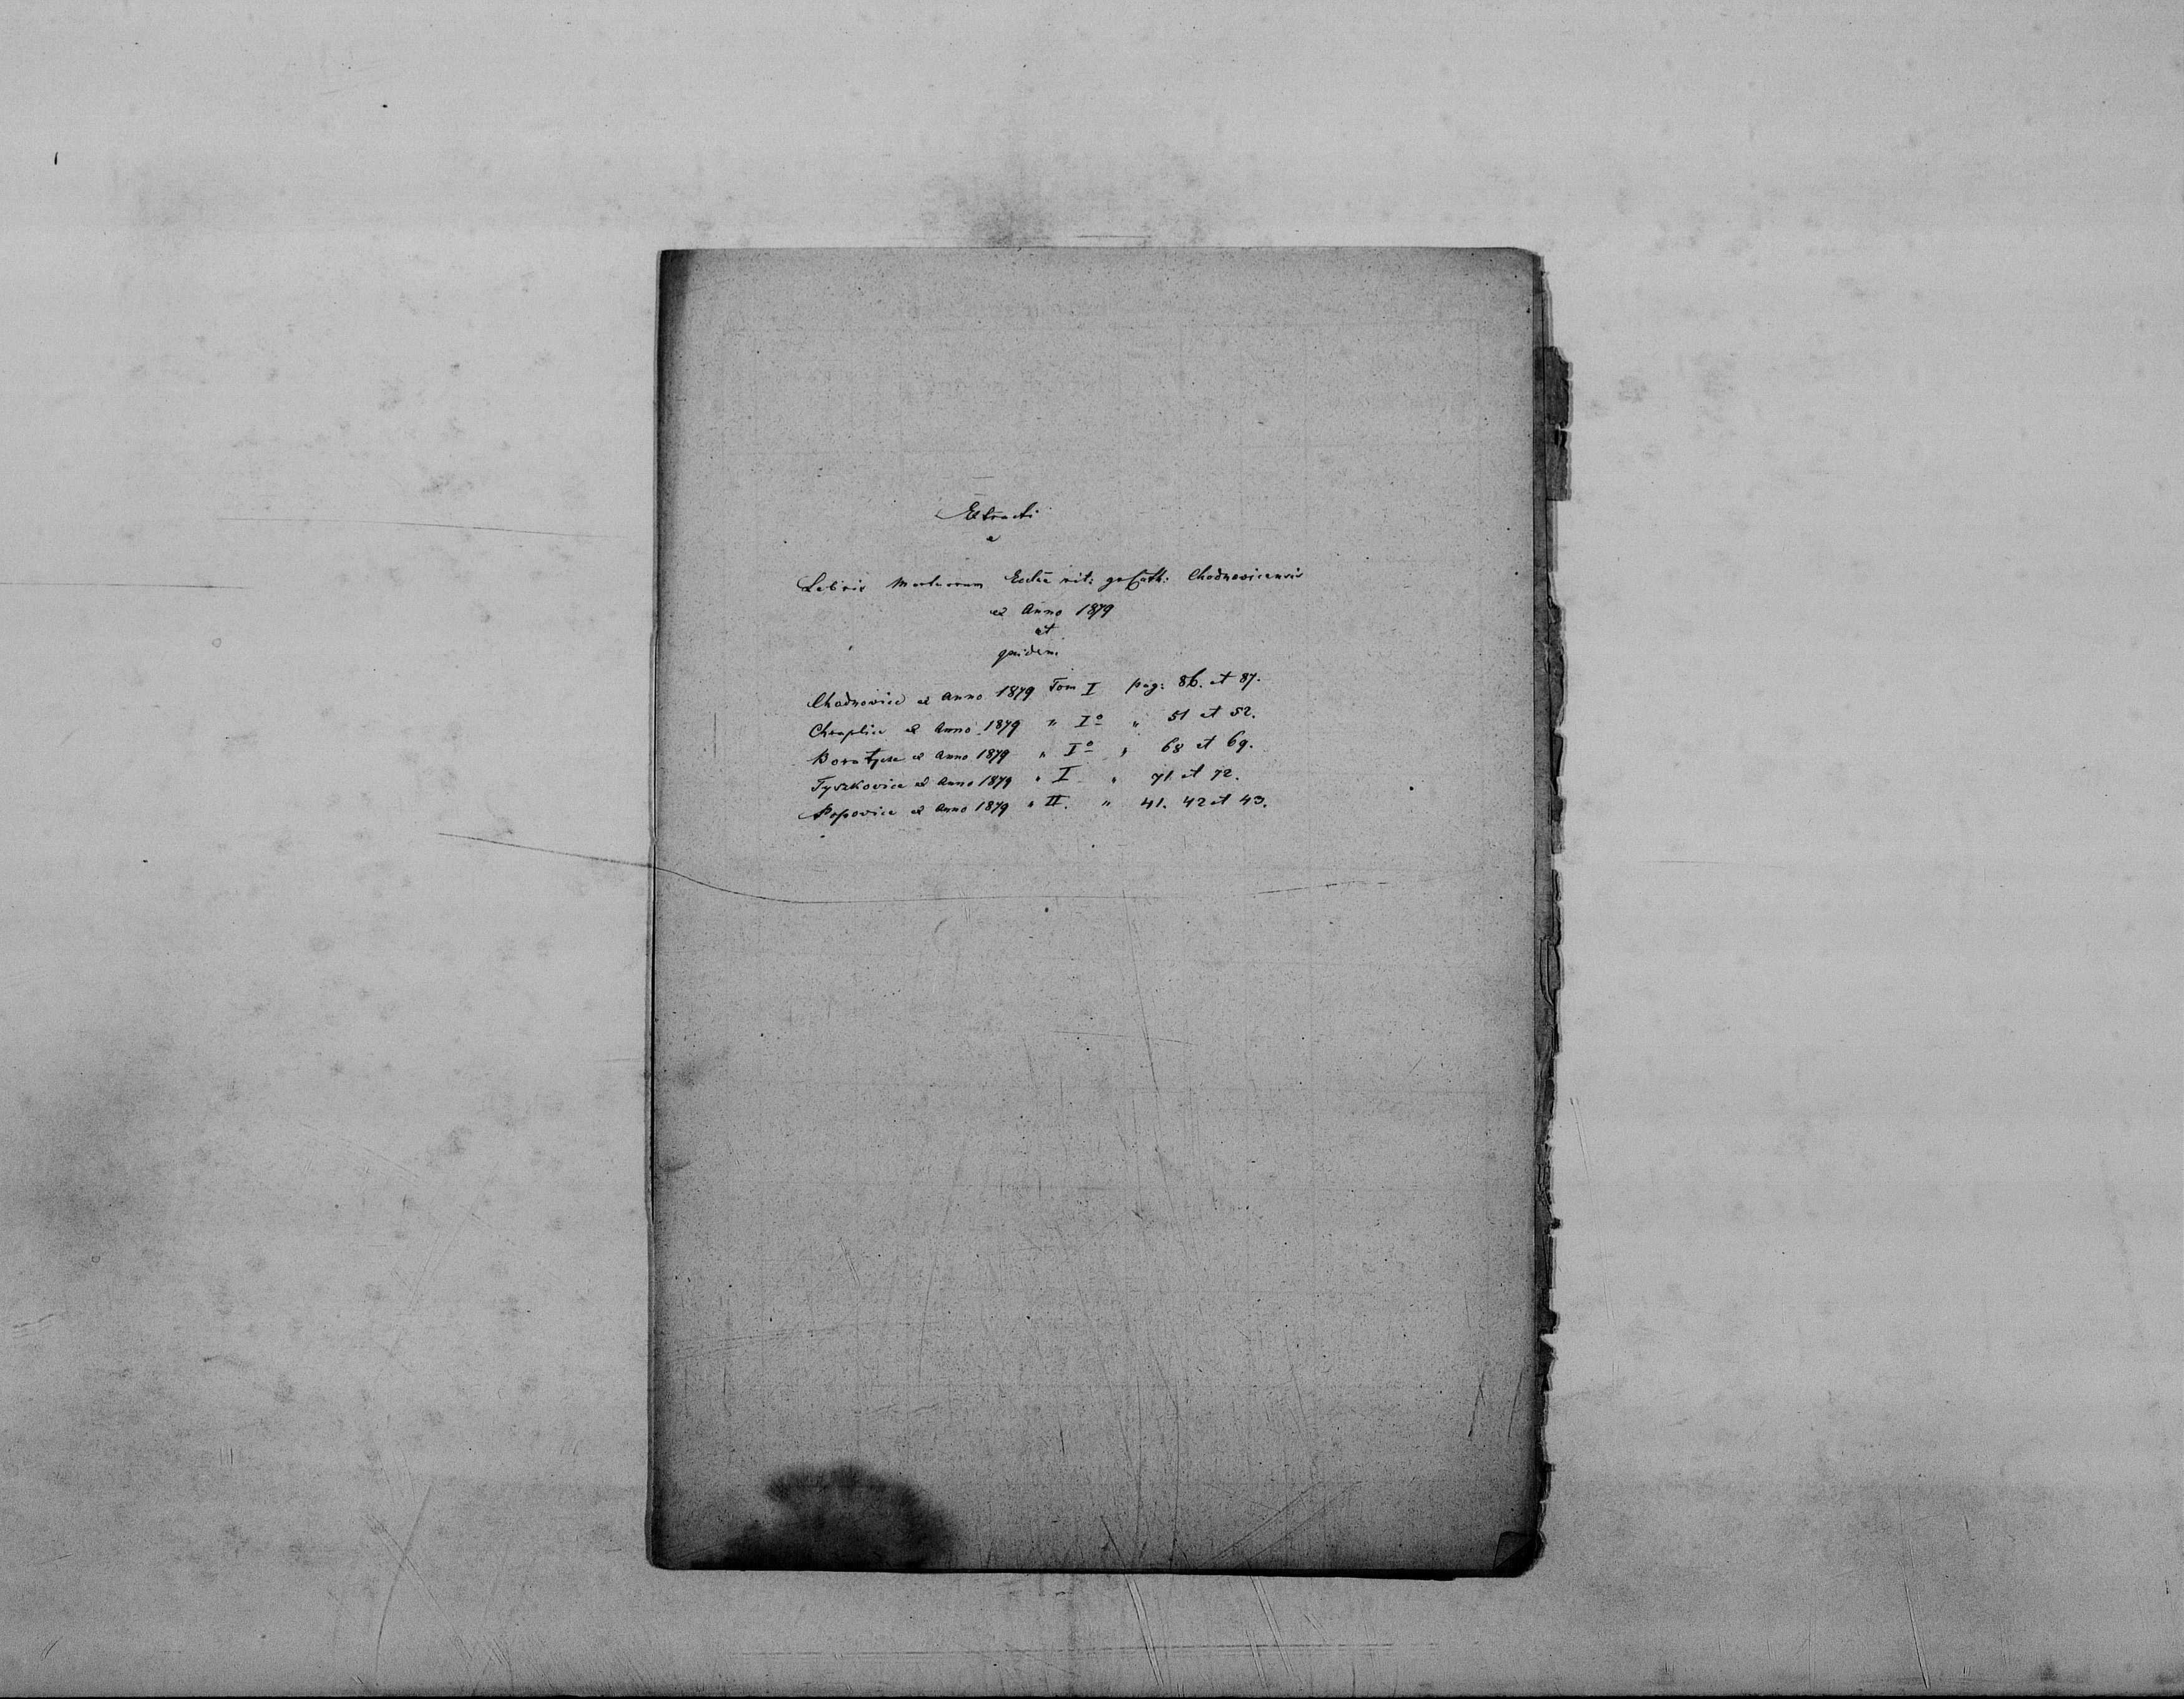 Extracti
e
Libris Mortuorum Eccłae rit: gr Cath: Chodnovicensis
ex Anno 1879
et
quidem
Chodnovice ex Anno 1879 Tom I pag: 86. et 87.
Chraplice ex Anno 1879 " Iº " 51 et 52.
Boratycze ex Anno 1879 " Iº " 68 et 69.
Tyszkovice ex Anno 1879 " I " 71. et 72.
Popovice ex Anno 1879 " II. " 41. 42 et 43.